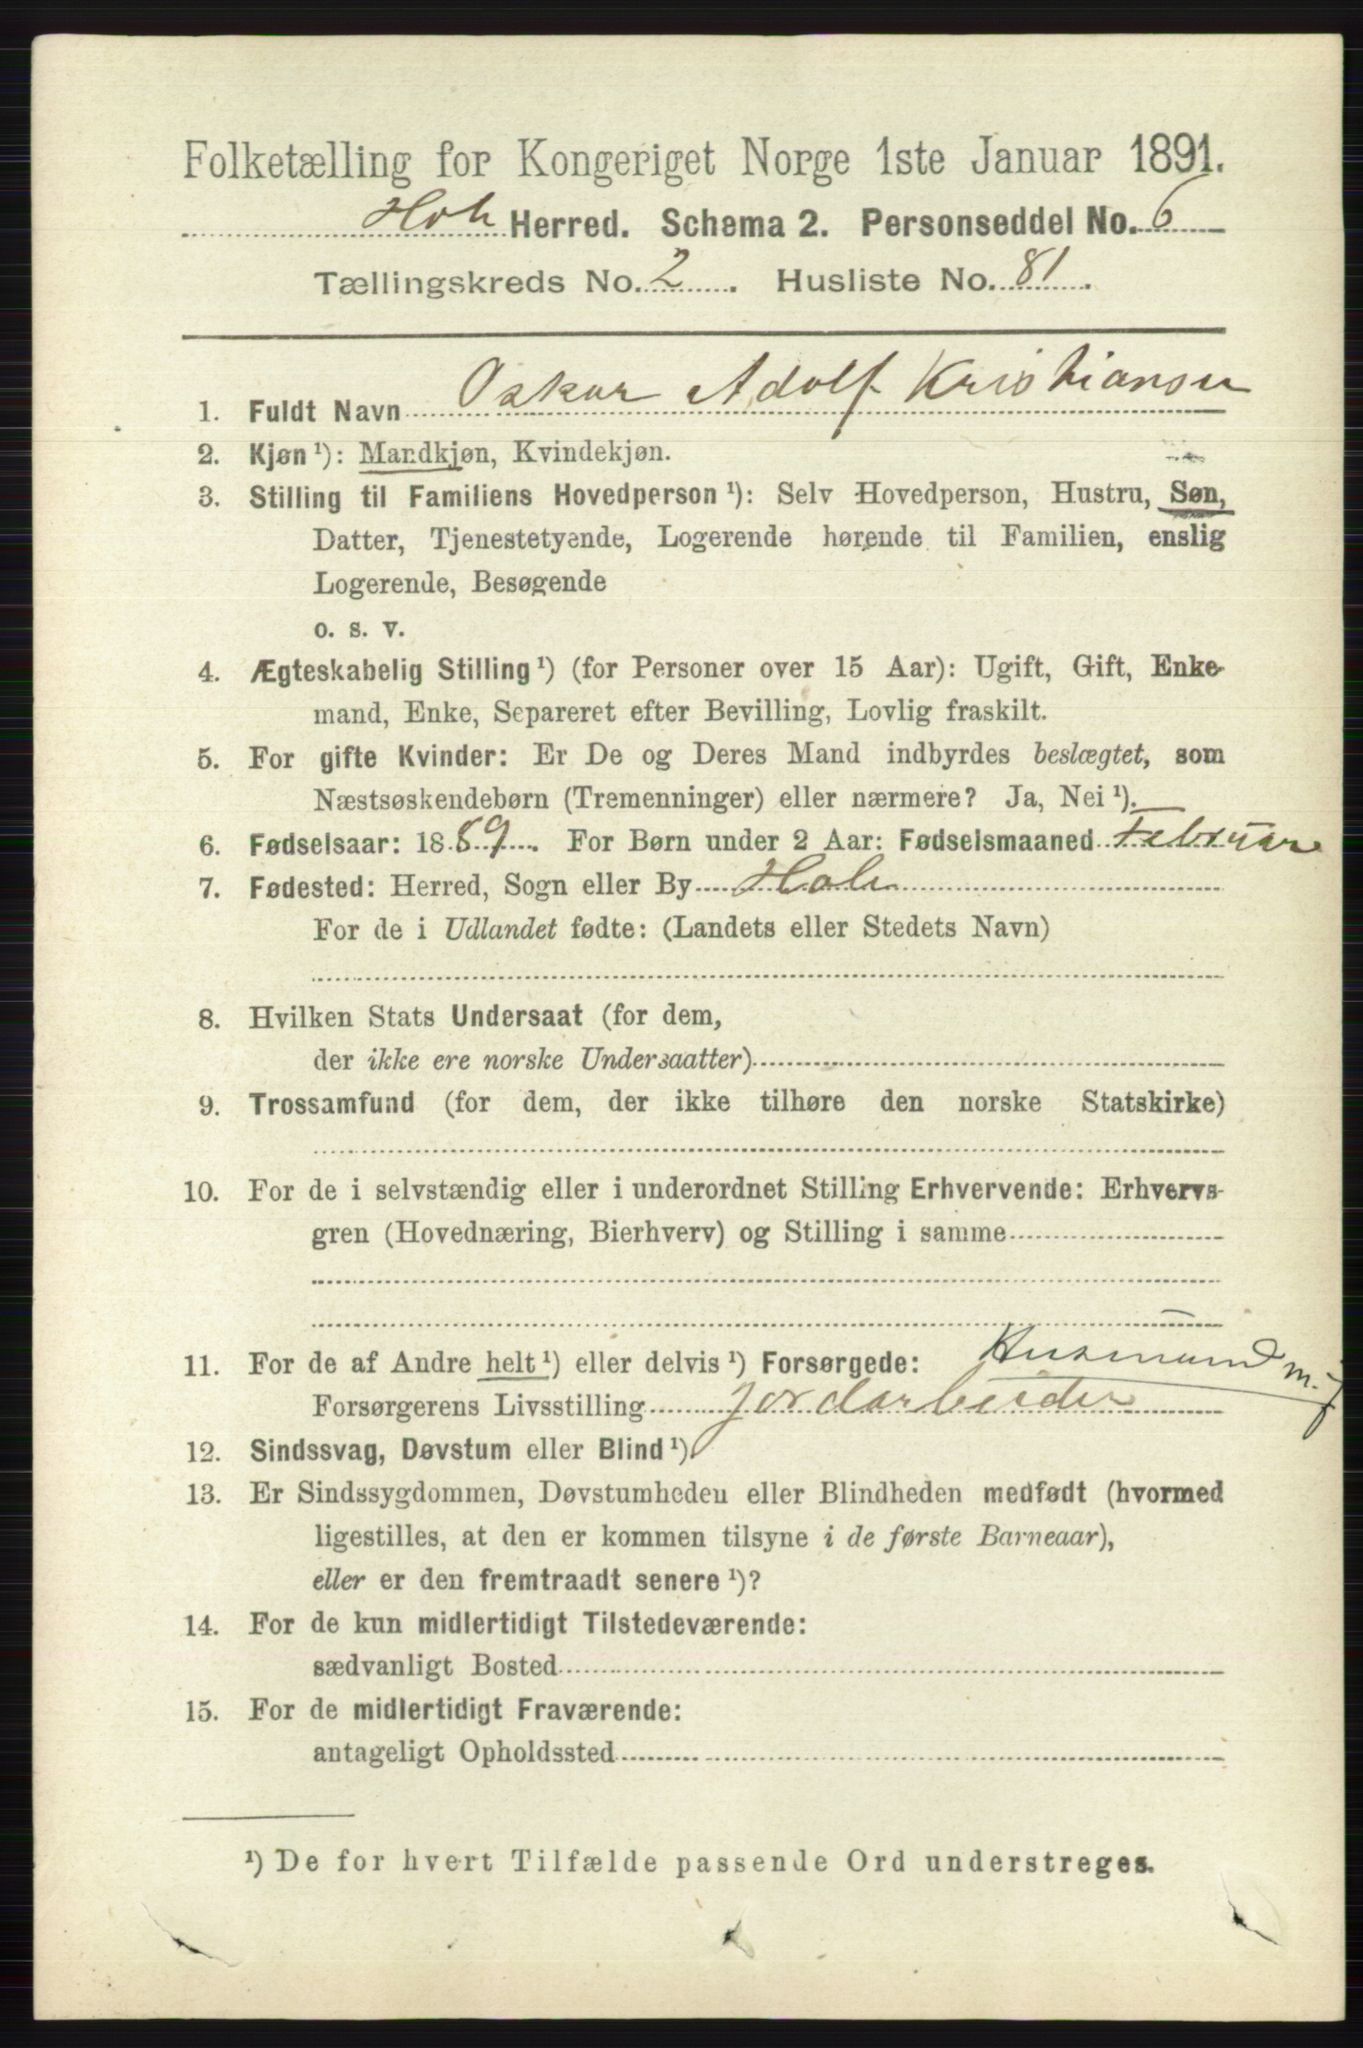 Folketælling for Kongeriget Norge 1ste Januar 1891.
Hole Herred. Schema 2. Personseddel No. 6
Tællingskreds No. 2. Husliste No. 81.
1. Fuldt Navn Oskar Adolf Kristiansen
2. Kjøn ¹): Mandkjøn, Kvindekjøn.
3. Stilling til Familiens Hovedperson ¹): Selv Hovedperson, Hustru, Søn,
Datter, Tjenestetyende, Logerende hørende til Familien, enslig
Logerende, Besøgende
o. s. v.
4. Ægteskabelig Stilling ¹) (for Personer over 15 Aar): Ugift, Gift, Enke-
mand, Enke, Separeret efter Bevilling, Lovlig fraskilt.
5. For gifte Kvinder: Er De og Deres Mand indbyrdes beslægtet, som
Næstsøskendebørn (Tremenninger) eller nærmere? Ja, Nei ¹).
6. Fødselsaar: 1889. For Børn under 2 Aar: Fødselsmaaned Februar
7. Fødested: Herred, Sogn eller By Hole
For de i Udlandet fødte: (Landets eller Stedets Navn)
8. Hvilken Stats Undersaat (for dem,
der ikke ere norske Undersaatter)
9. Trossamfund (for dem, der ikke tilhøre den norske Statskirke)
10. For de i selvstændig eller i underordnet Stilling Erhvervende: Erhvervs-
gren (Hovednæring, Bierhverv) og Stilling i samme
11. For de af Andre helt ¹) eller delvis ¹) Forsørgede: Husmand m. j
Forsørgerens Livsstilling jordarbeider
12. Sindssvag, Døvstum eller Blind ¹)
13. Er Sindssygdommen, Døvstumheden eller Blindheden medfødt (hvormed
ligestilles, at den er kommen tilsyne i de første Barneaar),
eller er den fremtraadt senere ¹)?
14. For de kun midlertidigt Tilstedeværende:
sædvanligt Bosted
15. For de midlertidigt Fraværende:
antageligt Opholdssted
¹) De for hvert Tilfælde passende Ord understreges.